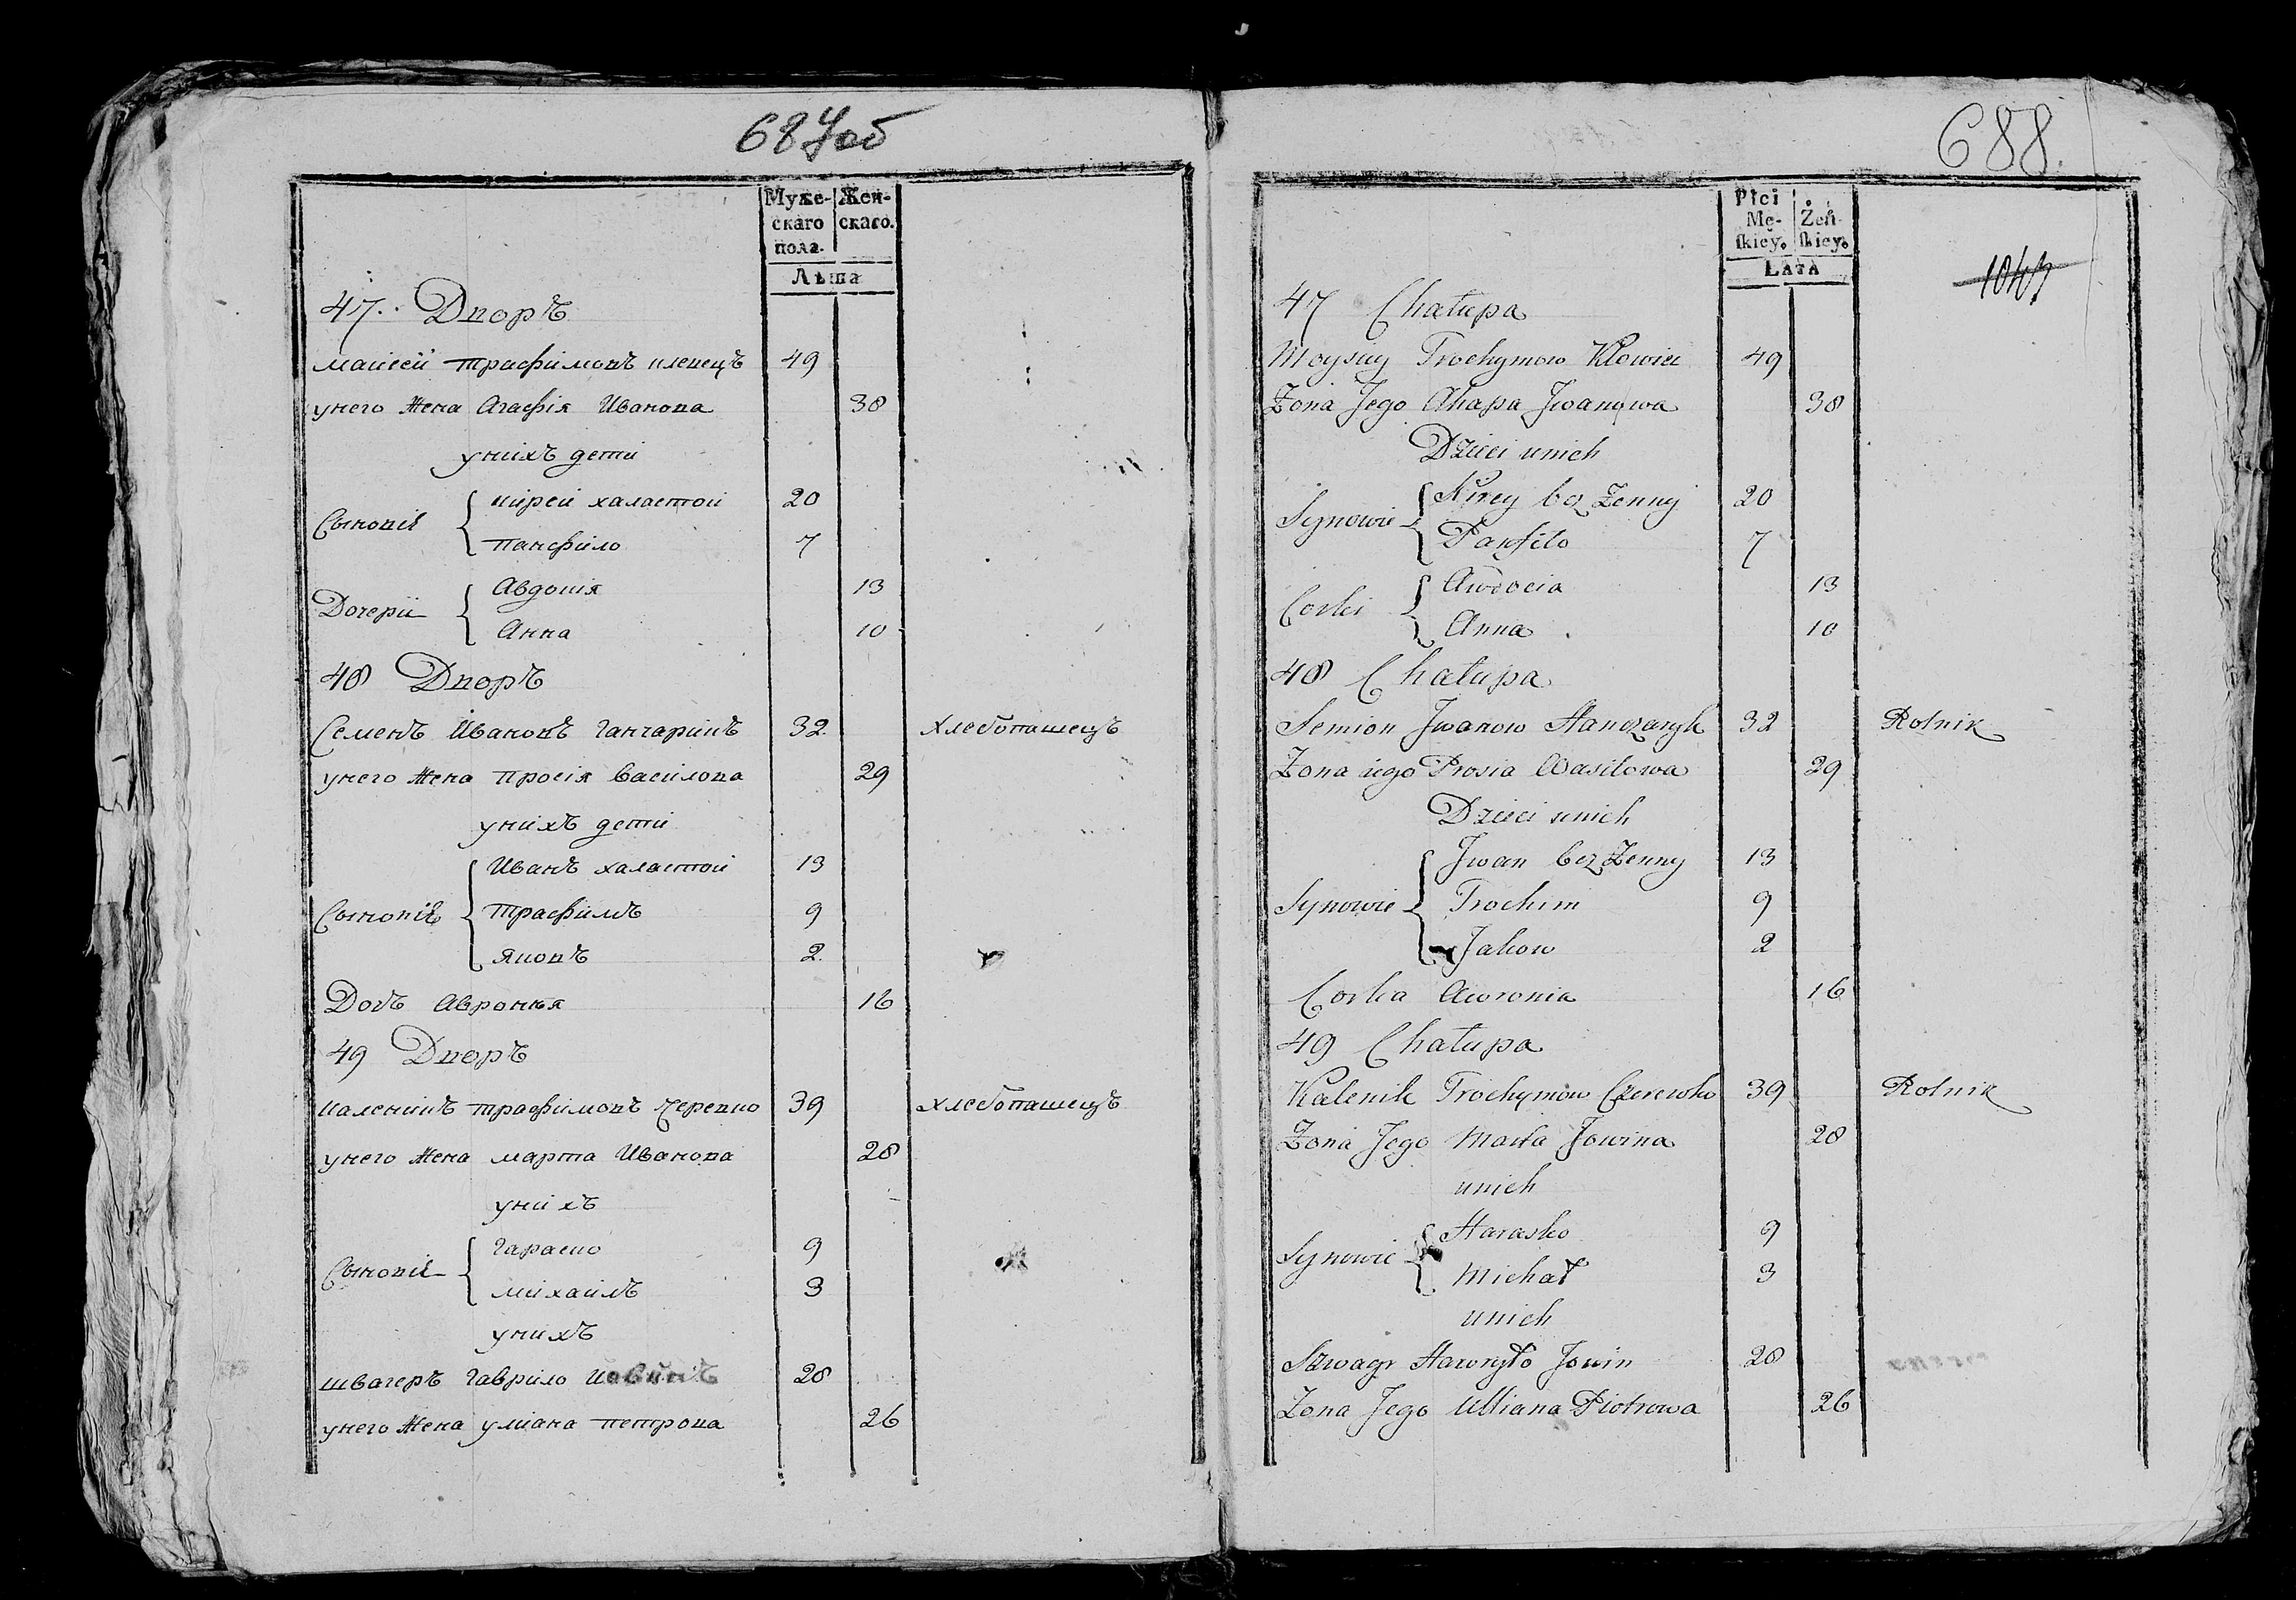 687об
Муже-
скаго
пола.
Жен-
скаго.
Лѣта
47. Дворъ
маисей трафимовъ клевецъ 49
унего жена Агафія Иванова 38
унихъ дети
Сыновіе
кирей халастой 20
панфило 7
Дочерии
Авдошія 13
Анна 10
48 Дворъ
Семенъ Ивановъ ганчарикъ 32 хлебопашецъ
унего жена прося василова 29
унихъ дети
Сыновіе
Иванъ халастой 13
трафимъ 9
яковъ 2
Дочъ Авронья 16
49 Дворъ
каленикъ трафимовъ черевко 39 хлебопашецъ
унего жена марта Иванова 28
унихъ
Сыновіе
гараско 9
михаилъ 3
унихъ
швагеръ гаврило Иовинъ 28
унего жена уліана петрова 26
688.
Płci
Mę-
skiey.
Żeń-
skiey.
LATA
47 Chałupa
Moysiey Trochymow Klewiec 49
Zona Jego Ahapa Jwanowa 38
Dzieci unich
Synowie
Kirey bez Zenny 20
Panfiło 7
Corki
Awdocia 13
Anna 10
48 Chałupa
Semion Jwanow Hanczaryk 32 Rolnik
Zona iego Prosia Wasilowa 29
Dzieci unich
Synowie
Jwan bez Zenny 13
Trochim 9
Jakow 2
Corka Awronia 16
49 Chałupa
Kalenik Trochymow Czerewko 39 Rolnik
Zona Jego Marta Jowina 28
unich
Synowie
Harasko 9
Michał 3
unich
Szwagr Hawryło Jowin 28
Zona Jego Ulliana Piotrowa 26